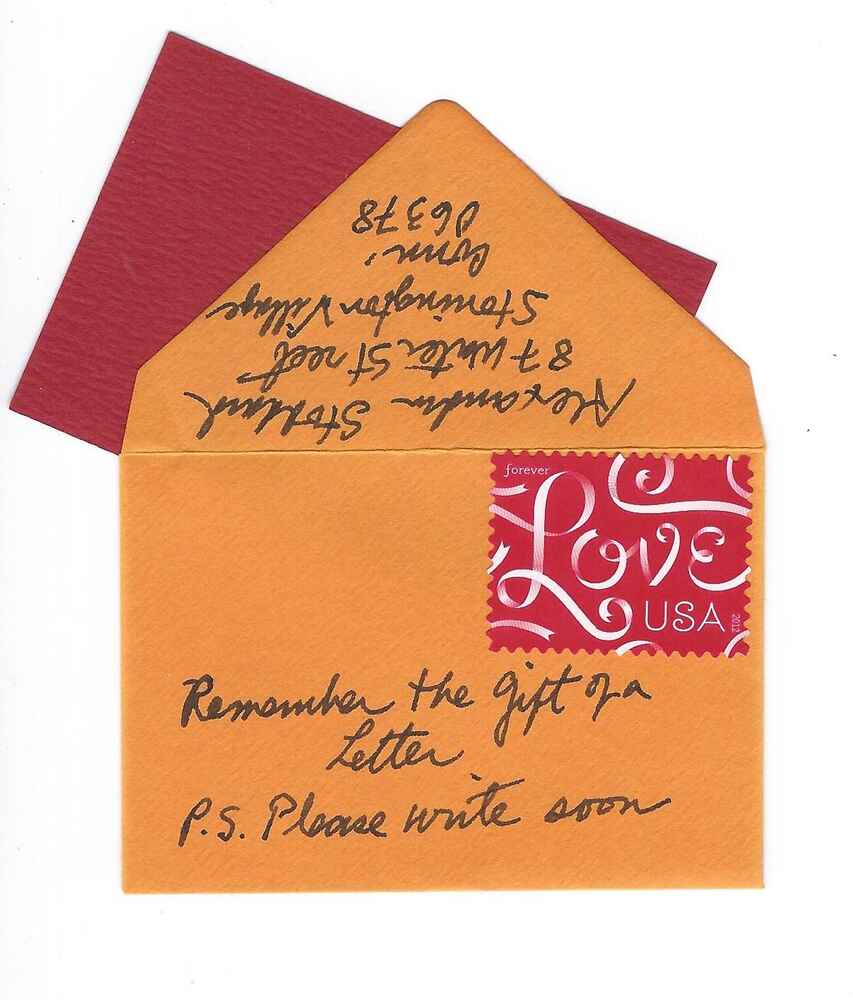 Alexandra Stoddard
87 Water Street
Stonington Village
Conn.
06378
forever
LOVE
USA
2012
Remember the Gift of a
Letter
P.S. Please write soon